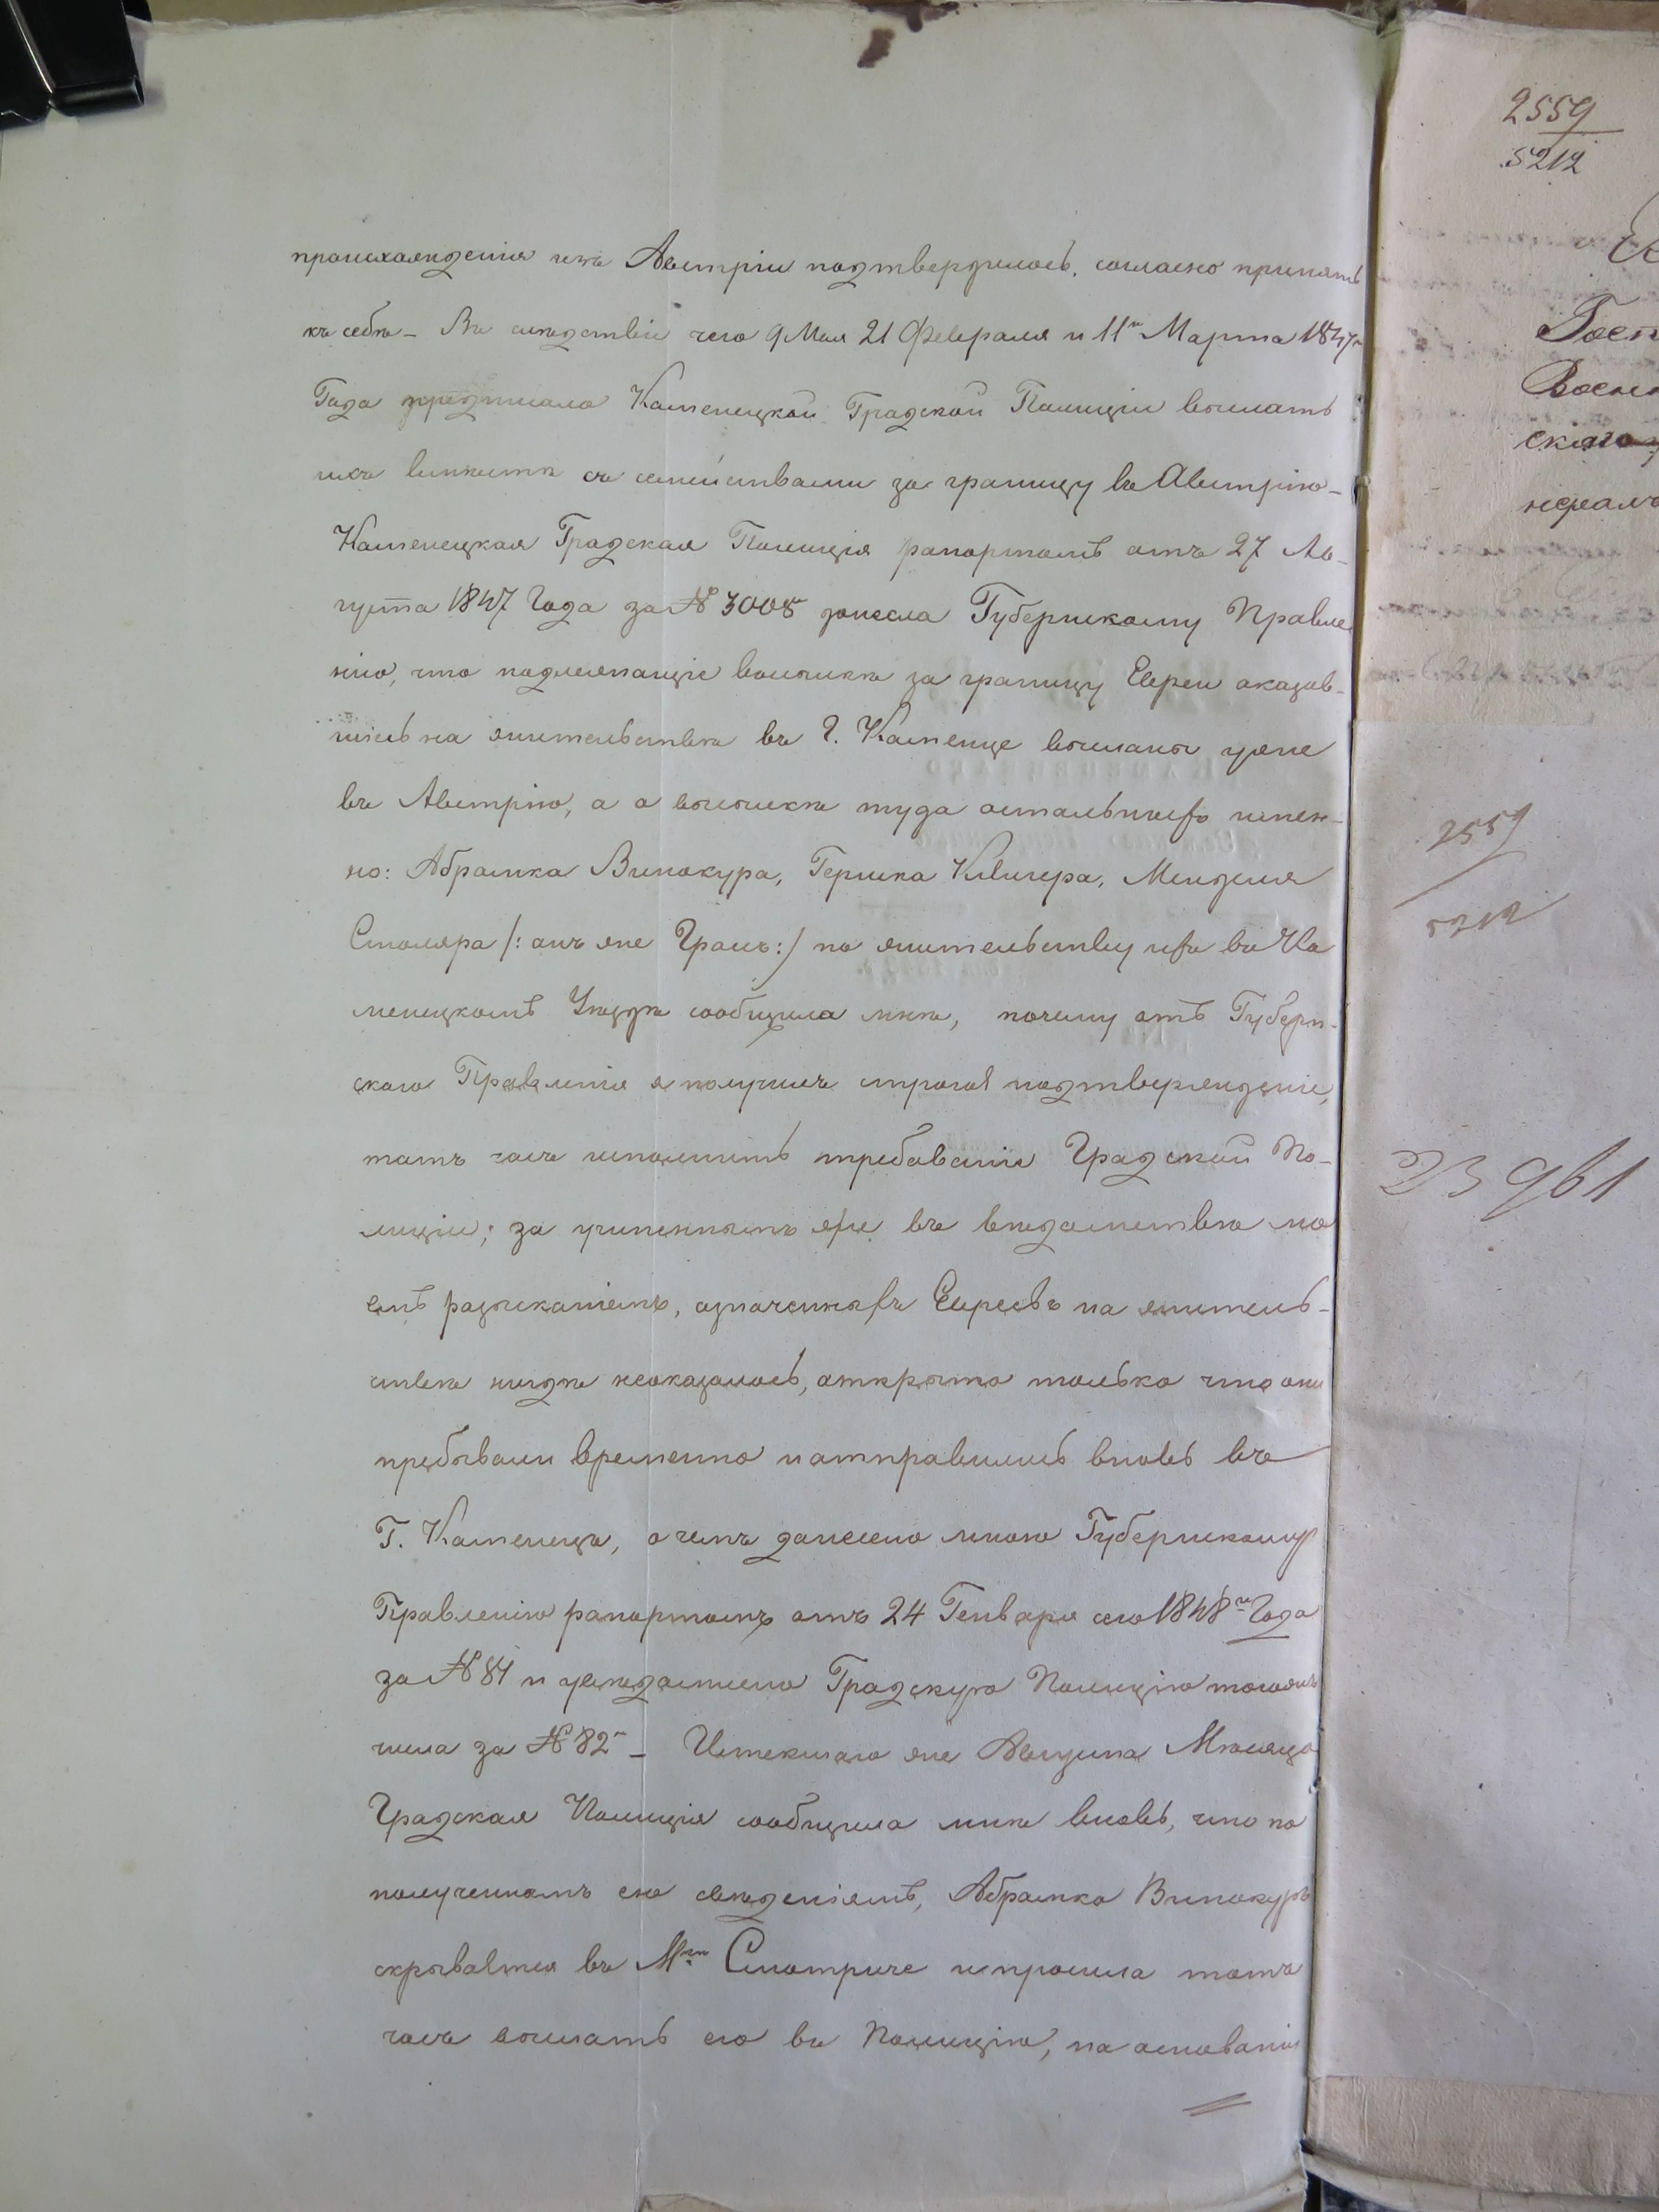 происхожденія ихъ Австріи подтвердилось, согласно принять
къ себѣ – Въ слѣдствіе чего 9 Мая 21 Февраля и 11го Марта 1847го
Года предписало Каменецкой Градской Полиціи выслать
ихъ вмѣстѣ съ семействами за границу въ Австрію –
Каменецкая Градская Полиція рапортомъ отъ 27 Ав-
густа 1847 Года за № 3005 донесла Губернскому Правле
нію, что подлежащіе высылкѣ за границу Евреи оказав-
шіесь на жительствѣ въ Г. Каменце высланы уже
въ Австрію, а о высылкѣ туда остальныхъ имен-
но: Абрамка Винокура, Гершка Клигера, Менделя
Столяра /: онъ же Грасъ :/ по жительству ихъ въ Ка
менецкомъ Уѣздѣ сообщила мнѣ, почему отъ Губерн-
скаго Правленія я получилъ строгое подтвержденіе,
тотъ часъ исполнить требованіе Градской По-
лиціи; за учиненнымъ же въ вѣдомствѣ мо
емъ розысканіемъ, означенныхъ Евреевъ на житель-
ствѣ нигдѣ неоказалось, открыто только что они
пребывали временно и отправились вновь въ
Г. Каменецъ, о чемъ донесено мною Губернскому
Правленію рапортомъ отъ 24 Генваря сего 1848го Года
за № 81 и увѣдомлено Градскую Полицію тогожъ
числа за № 82м – Истекшаго же Августа Мѣсяца
Градская Полиція сообщила мнѣ вновь, что по
полученнымъ ею свѣденіямъ, Абрамко Винокуръ
скрывается въ Мкѣ Смотриче и просила тотъ
часъ выслать его въ Полицію, на основаніи
2559
5212
Госп
Воен
скаго
нералъ
2559
5212
23961